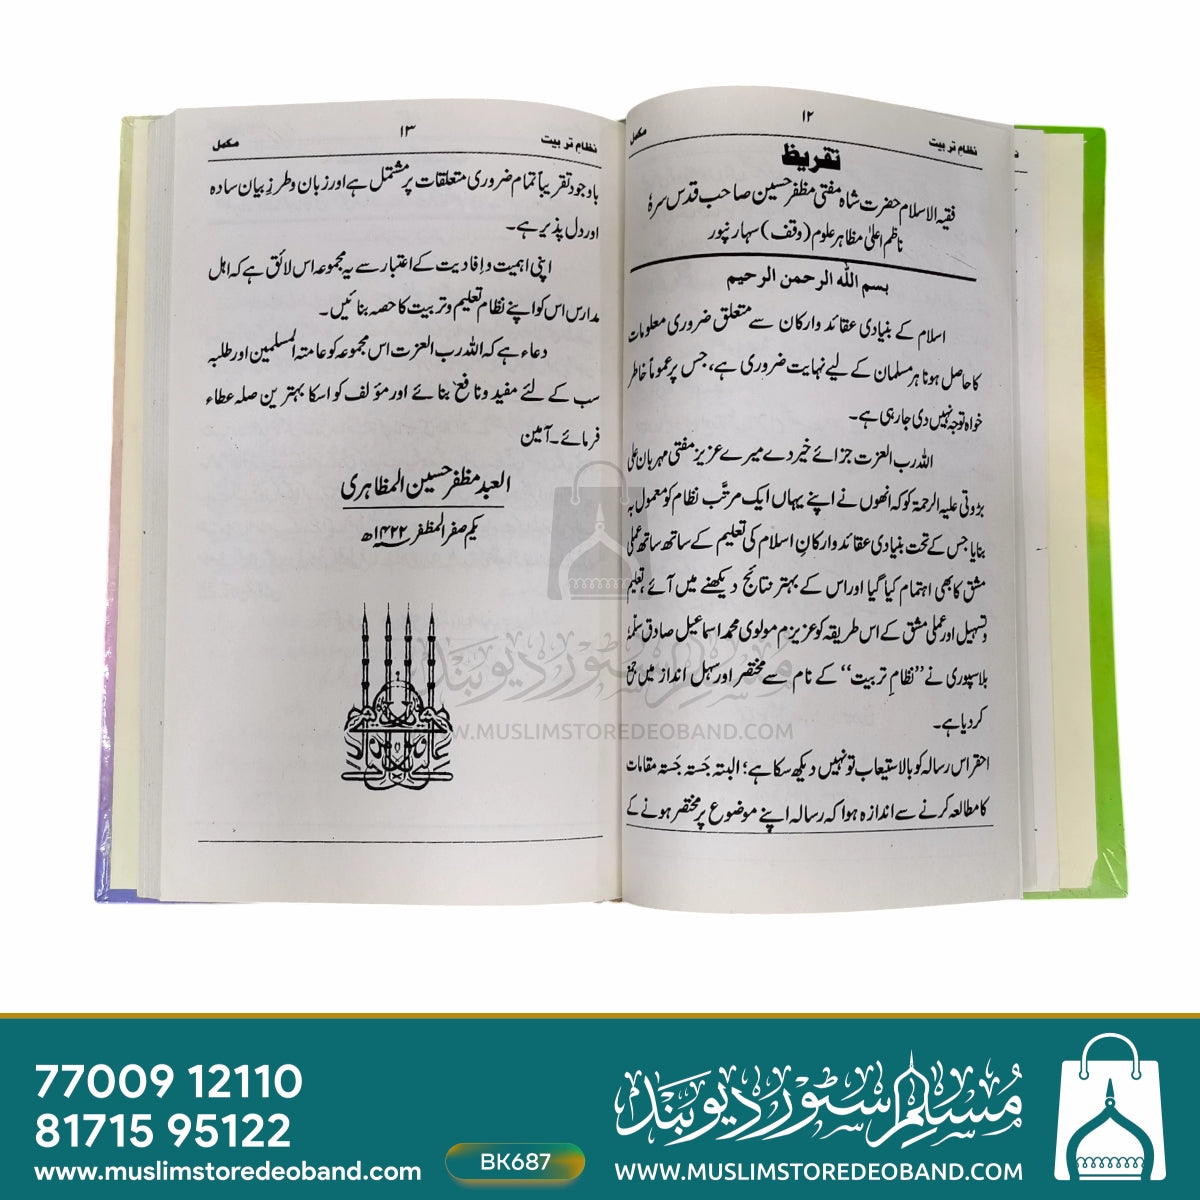 ۱۲
نظام تربیت
مکمل
تقریظ
فقیہ الاسلام حضرت شاہ مفتی مظفر حسین صاحب قدس سرہٗ
ناظم اعلیٰ مظاہر علوم (وقف) سہارنپور
بسم اللہ الرحمن الرحیم
اسلام کے بنیادی عقائد وارکان سے متعلق ضروری معلومات
کا حاصل ہونا ہر مسلمان کے لیے نہایت ضروری ہے، جس پر عموماً خاطر
خواہ توجہ نہیں دی جارہی ہے۔
اللہ رب العزت جزائے خیر دے میرے عزیز مفتی مہربان علی
بڑوتی علیہ الرحمۃ کو کہ انھوں نے اپنے یہاں ایک مرتَّب نظام کو معمول بہ
بنایا جس کے تحت بنیادی عقائد وارکانِ اسلام کی تعلیم کے ساتھ ساتھ عملی
مشق کا بھی اہتمام کیا گیا اور اس کے بہتر نتائج دیکھنے میں آئے، تعلیم
وتسہیل اور عملی مشق کے اس طریقہ کو عزیزم مولوی محمد اسماعیل صادق سلّمہٗ
بلاسپوری نے ’’نظامِ تربیت‘‘ کے نام سے مختصر اور سہل انداز میں جمع
کردیا ہے۔
احقر اس رسالہ کو بالاستیعاب تو نہیں دیکھ سکا ہے؛ البتہ جَستہ جَستہ مقامات
کا مطالعہ کرنے سے اندازہ ہوا کہ رسالہ اپنے موضوع پر مختصر ہونے کے
۱۳
نظام تربیت
مکمل
باوجود تقریباً تمام ضروری متعلقات پر مشتمل ہے اور زبان وطرزِ بیان سادہ
اور دل پذیر ہے۔
اپنی اہمیت و افادیت کے اعتبار سے یہ مجموعہ اس لائق ہے کہ اہل
مدارس اس کو اپنے نظام تعلیم وتربیت کا حصہ بنائیں۔
دعاء ہے کہ اللہ رب العزت اس مجموعہ کو عامۃ المسلمین اور طلبہ
سب کے لئے مفید ونافع بنائے اور مؤلف کو اسکا بہترین صلہ عطاء
فرمائے۔ آمین
العبد مظفر حسین المظاہری
یکم صفر المظفر ۱۴۲۲ھ
مسلم سٹور دیوبند
WWW.MUSLIMSTOREDEOBAND.COM
77009 12110
81715 95122
www.muslimstoredeoband.com
BK687
مسلم سٹور دیوبند
WWW.MUSLIMSTOREDEOBAND.COM